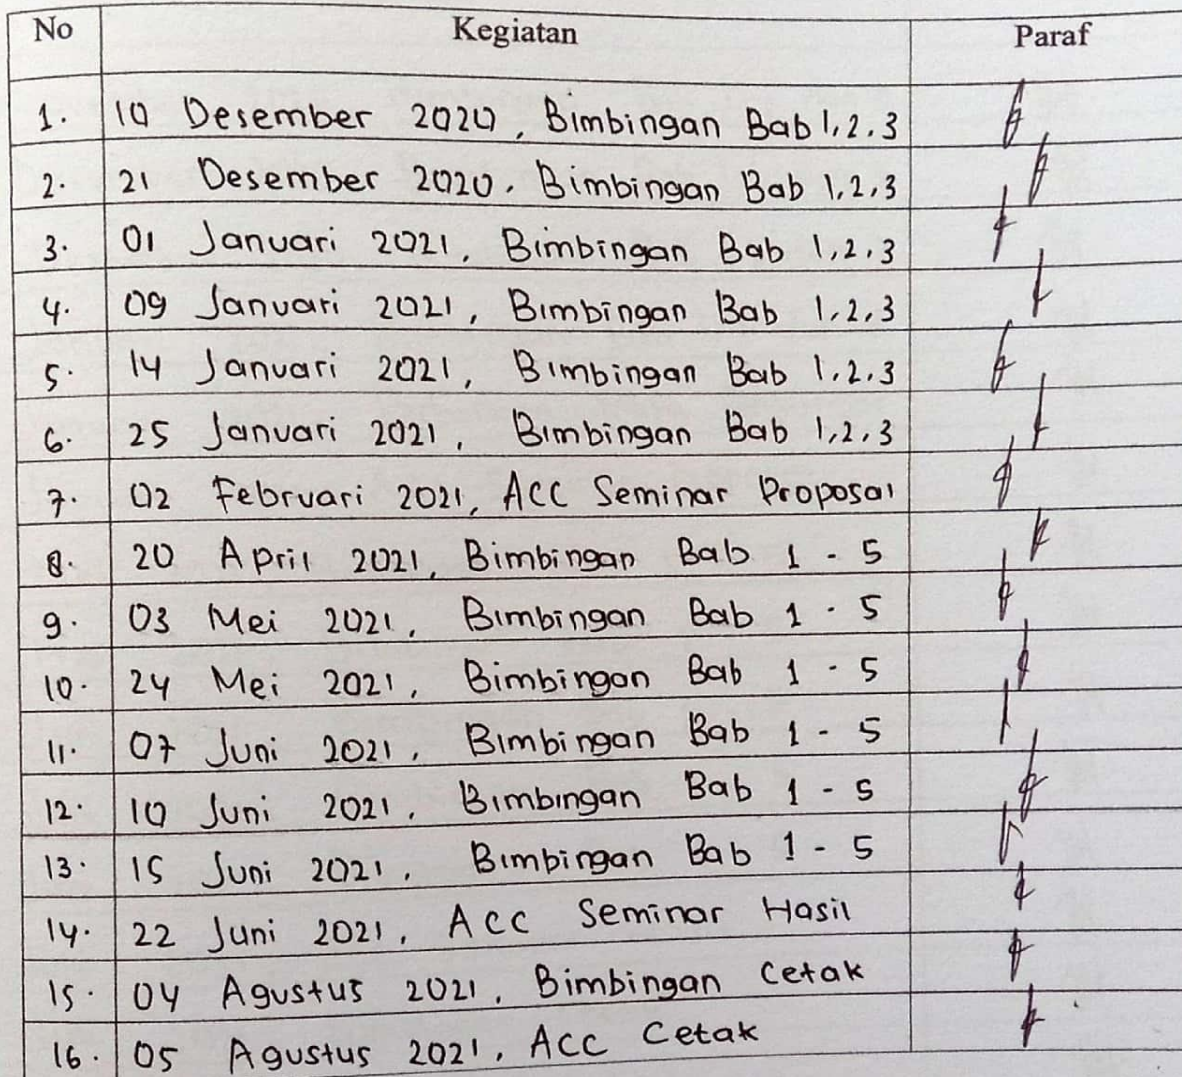 No Kegiatan Paraf
1. 10 Desember 2020, Bimbingan Bab 1, 2, 3
2. 21 Desember 2020, Bimbingan Bab 1, 2, 3
3. 01 Januari 2021, Bimbingan Bab 1, 2, 3
4. 09 Januari 2021, Bimbingan Bab 1, 2, 3
5. 14 Januari 2021, Bimbingan Bab 1, 2, 3
6. 25 Januari 2021, Bimbingan Bab 1, 2, 3
7. 02 Februari 2021, ACC Seminar Proposal
8. 20 April 2021, Bimbingan Bab 1 - 5
9. 03 Mei 2021, Bimbingan Bab 1 - 5
10. 24 Mei 2021, Bimbingan Bab 1 - 5
11. 07 Juni 2021, Bimbingan Bab 1 - 5
12. 10 Juni 2021, Bimbingan Bab 1 - 5
13. 15 Juni 2021, Bimbingan Bab 1 - 5
14. 22 Juni 2021, ACC Seminar Hasil
15. 04 Agustus 2021, Bimbingan Cetak
16. 05 Agustus 2021, ACC Cetak